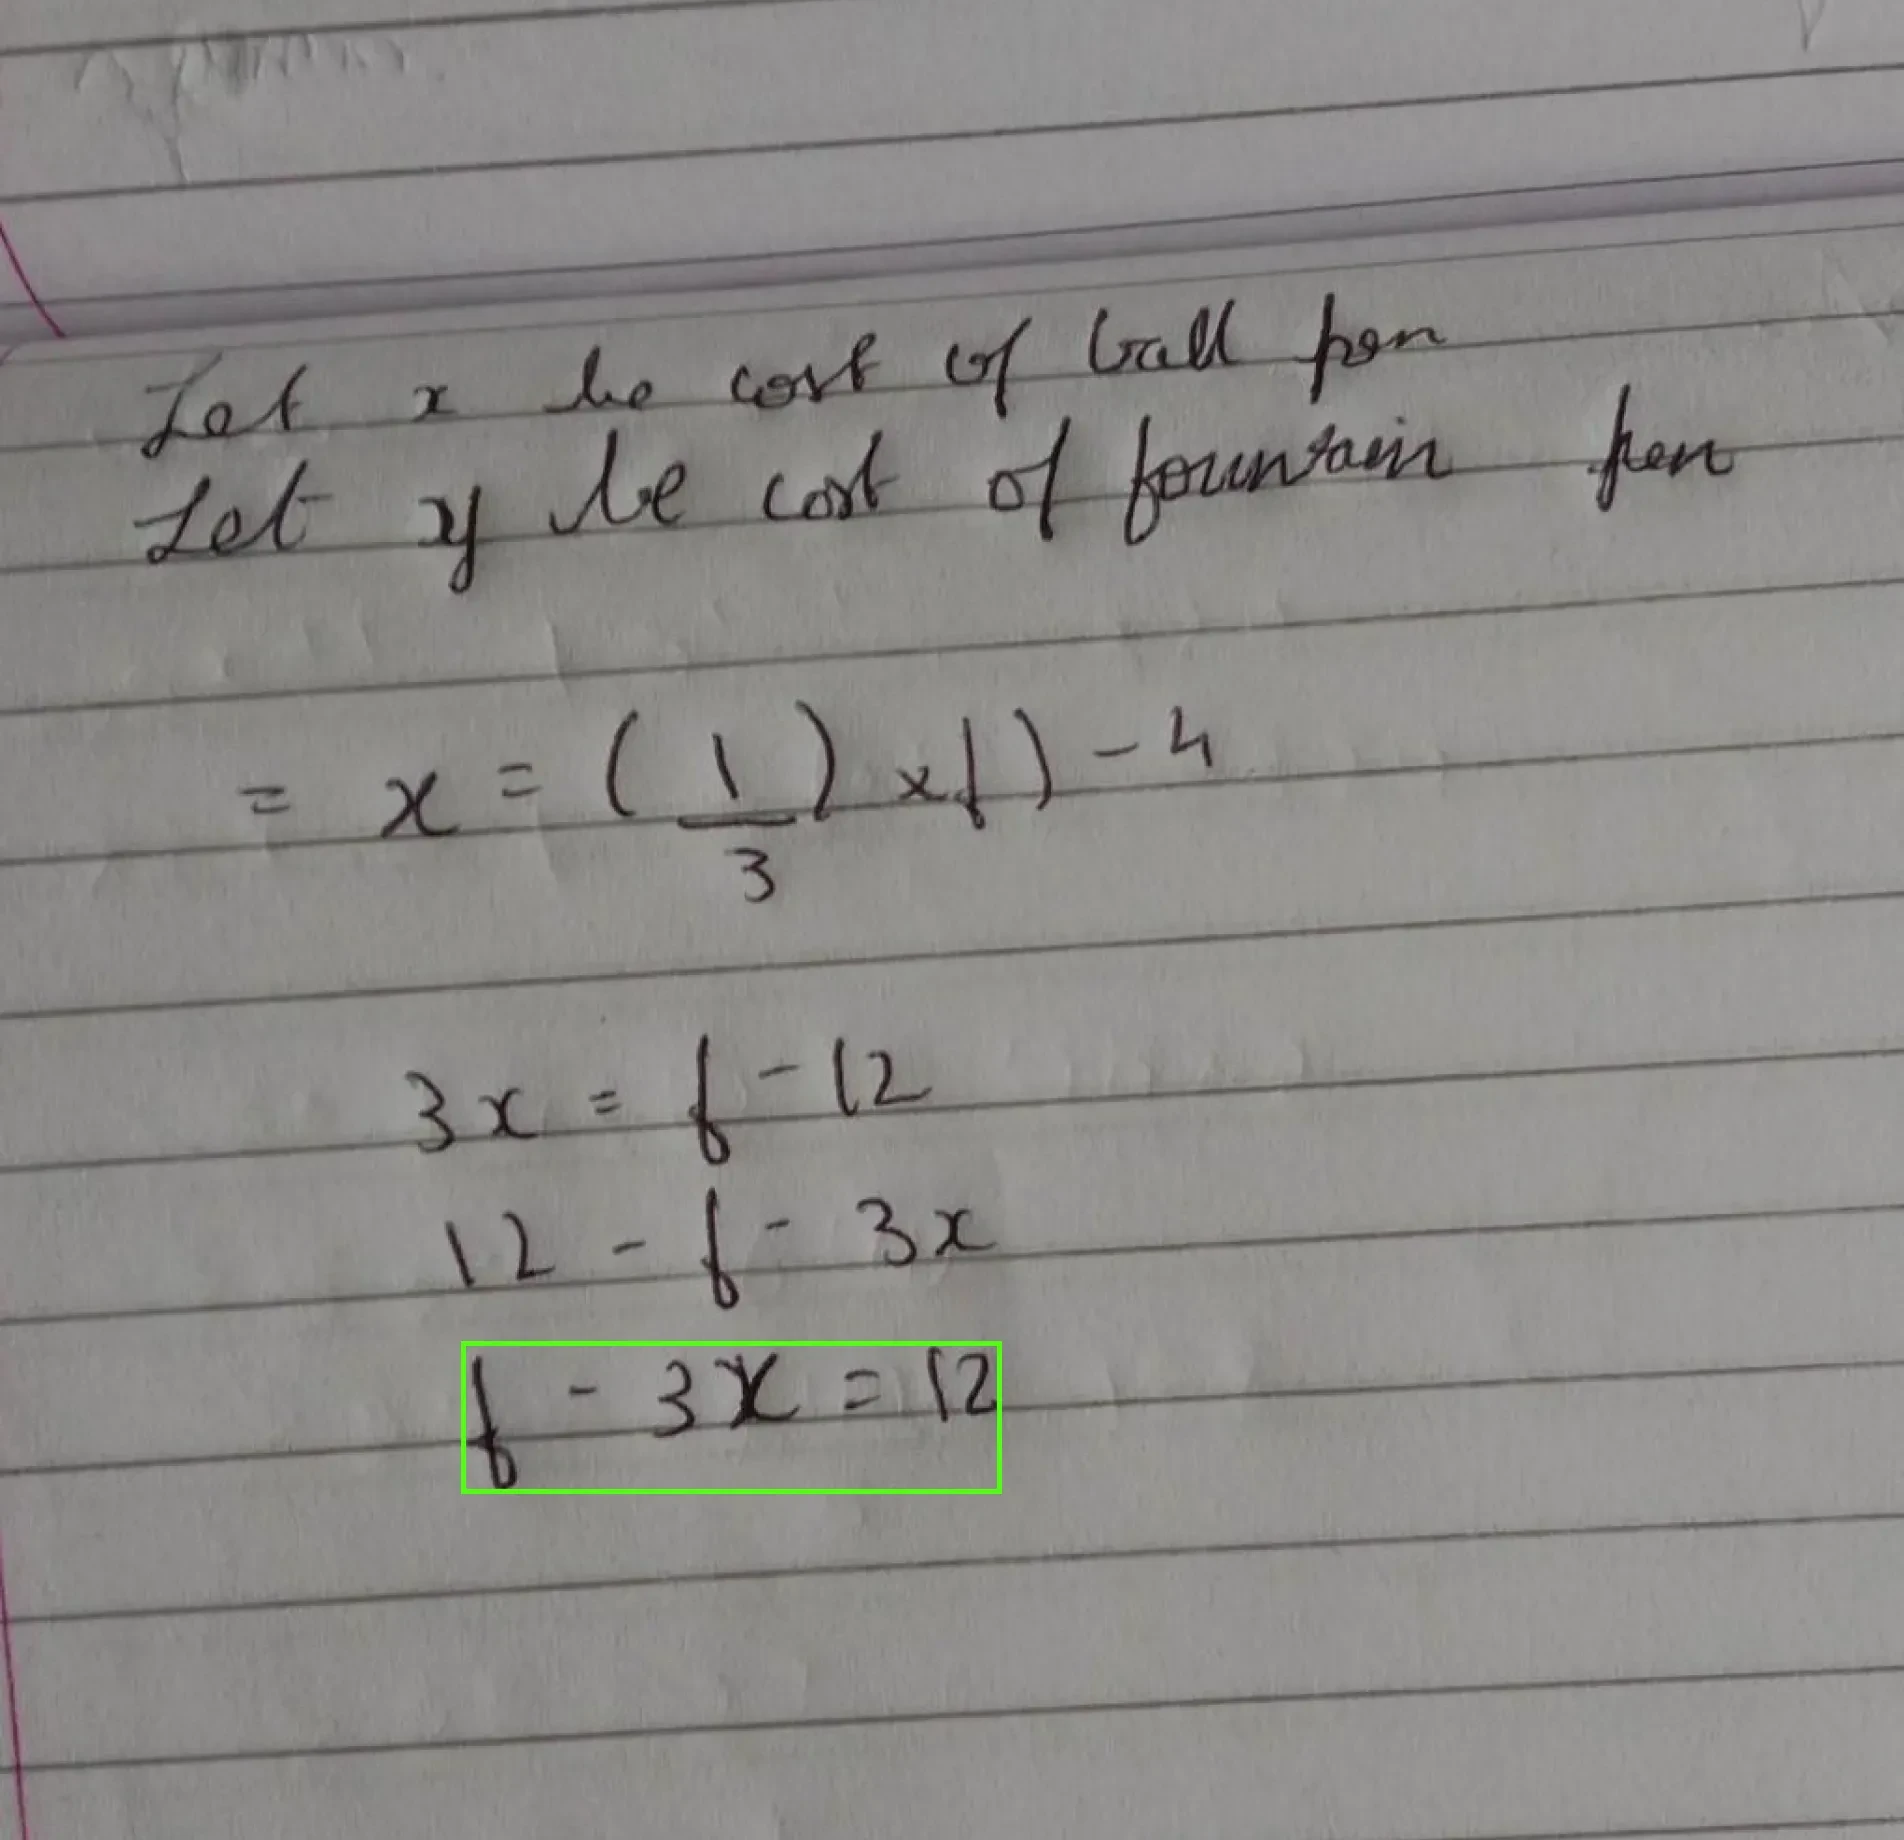 Let x be cost of ball pen
Let y be cost of fountain pen
= x = ( 1/3 ) x f ) - 4
3x = f - 12
12 - f - 3x
f - 3x = 12